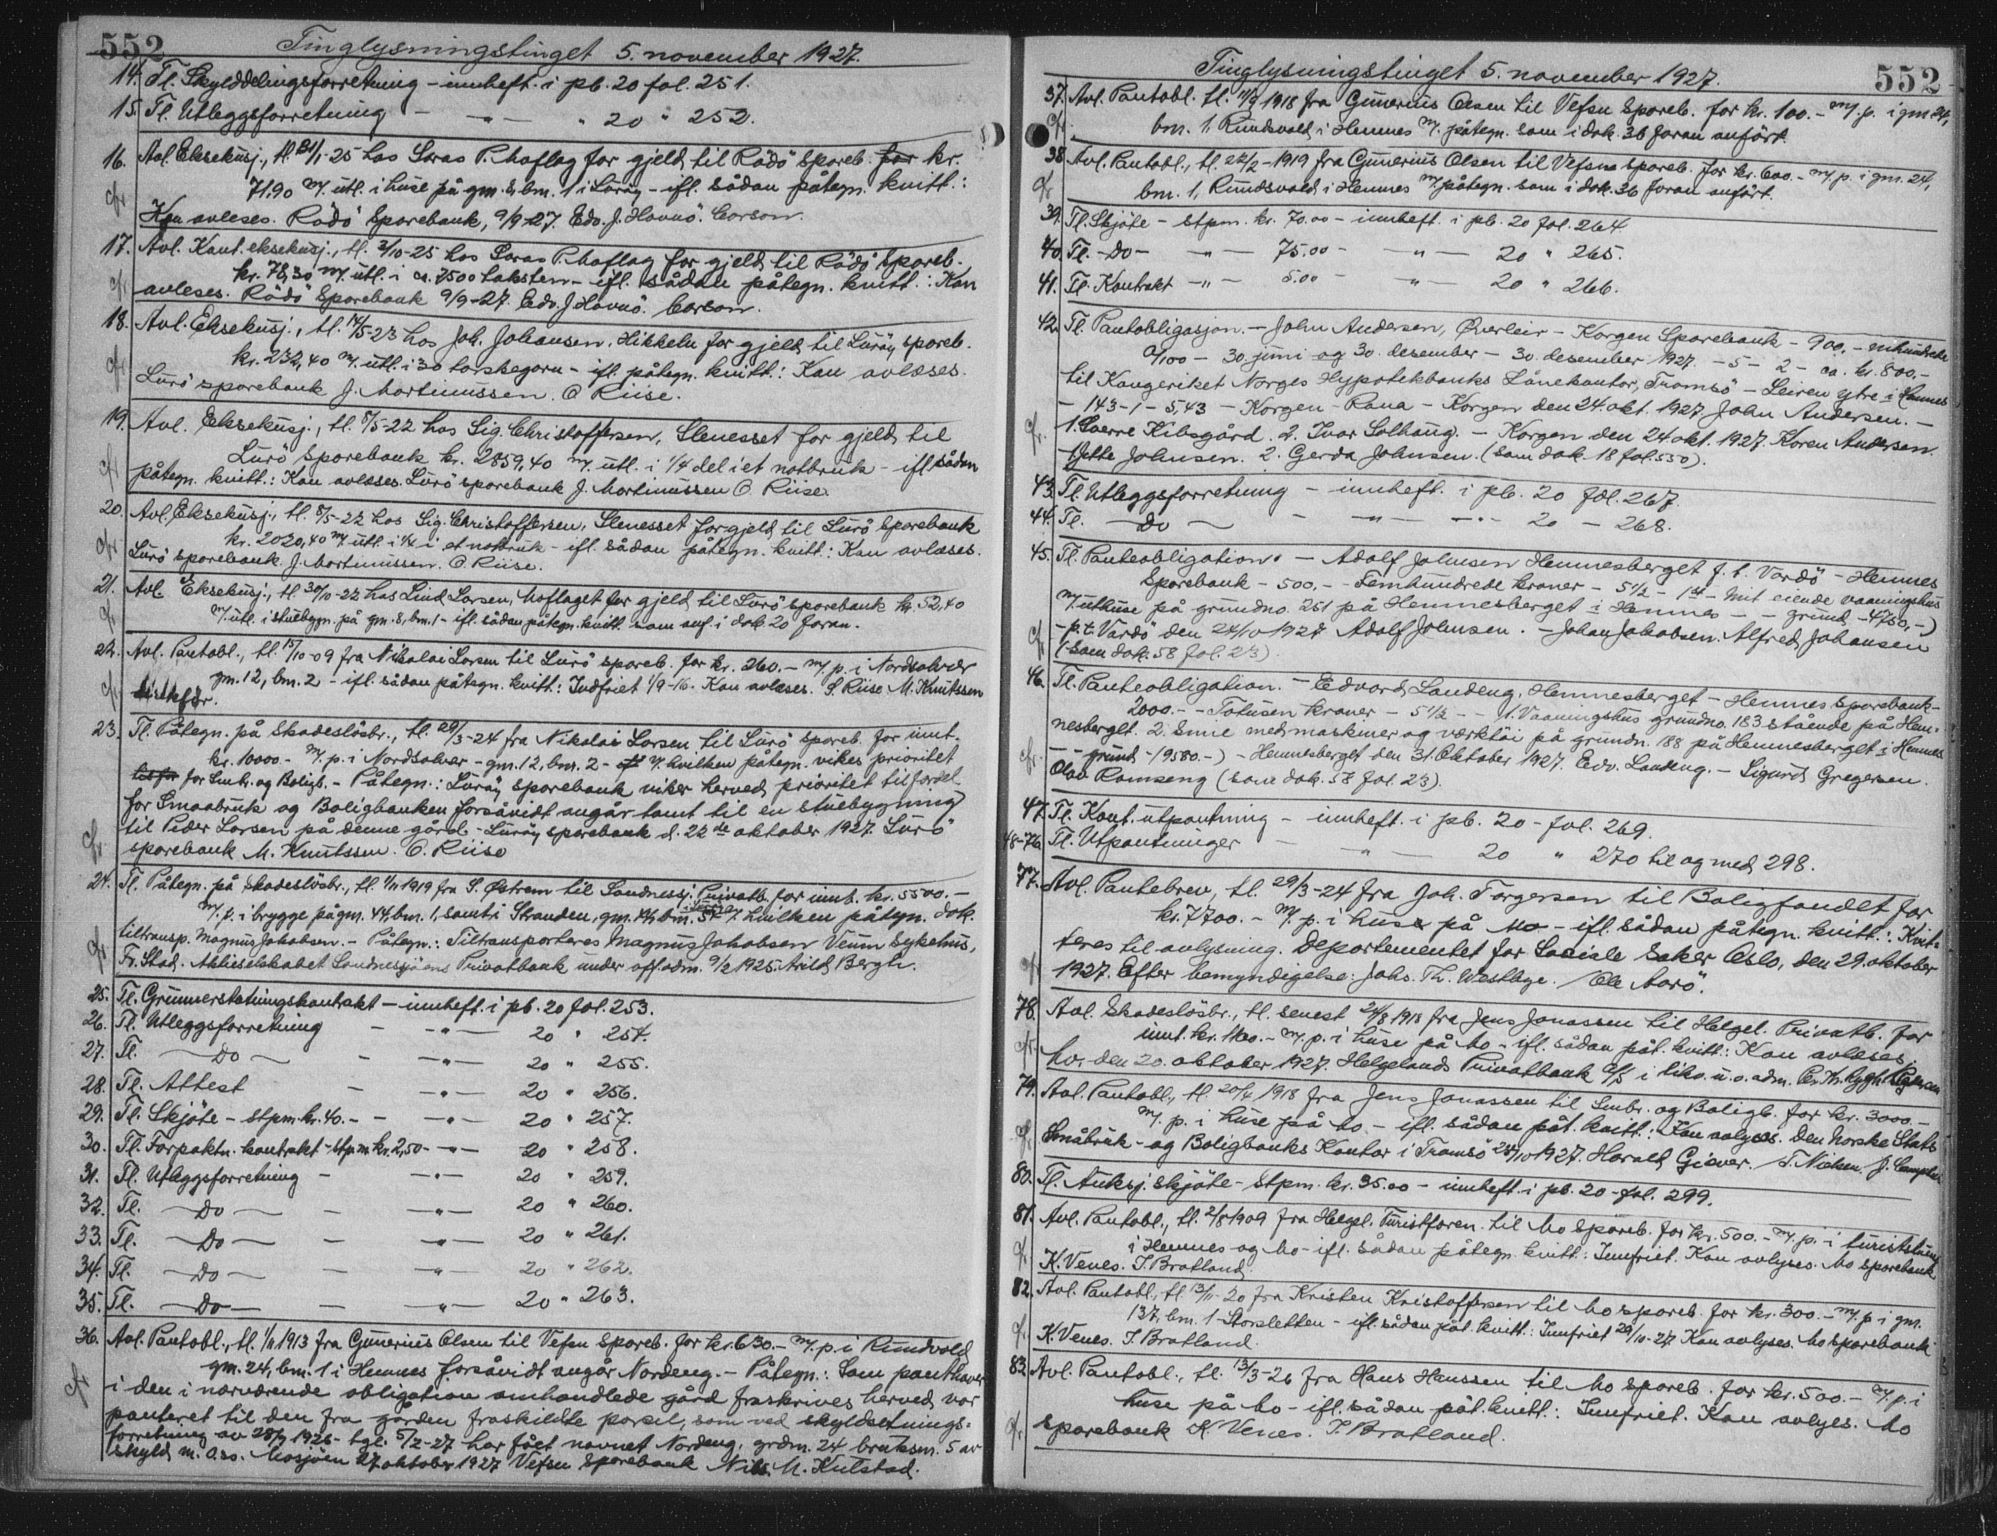 552
Tinglysningstinget 5. november 1927.
14. Tl. Skylddelingsforretning - innheft. i pb. 20 fol. 251.
15. Tl. Utleggsforretning - " - " 20 " 252.
16. Avl. Eksekusj., tl. 21/1-25 hos Loras P. Moflag for gjeld til Rödö Spareb. for kr.
71.90 m/ utl. i huse på gm. 8, bm. 1 i Luröy - ifl. sådan påtegn. kvitt.:
Kan avleses. Rödö Sparebank, 9/9-27. Edv. J. Hovnö. Carson.
17. Avl. Kont. eksekusj., tl. 2/10-25 hos Loras P. Moflag for gjeld til Rödö Spareb.
kr. 78,30 m/ utl. i ca. 7500 taksten - ifl. sådan påtegn. kvitt.: Kan
avleses. Rödö Sparebank 9/9-27. Edv. J. Hovnö. Carson.
18. Avl. Eksekusj., tl. 14/5-23 hos Joh. Johansen, Hikkeln for gjeld til Luröy spareb.
kr. 232,40 m/ utl. i 30 torskegarn - ifl. påtegn. kvitt.: Kan avlæses.
Lurö sparebank J. Mortinussen. O Riise.
19. Avl. Eksekusj., tl. 8/5-22 hos Sig. Christoffersen, Slenesset for gjeld til
Lurö sparebank kr. 2859,40 m/ utl. i 1/4 del i et notbruk - ifl. sådan
påtegn. kvitt.: Kan avlæses. Lurö sparebank J. Mortinussen O. Riise.
20. Avl. Eksekusj., tl. 8/5-22 hos Sig. Christoffersen, Slenesset for gjeld til Lurö Sparebank
kr. 2020,40 m/ utl. i 1/4 i et notbruk - ifl. sådan påtegn. kvitt.: Kan avlæses.
Lurö sparebank. J. Mortinussen. O. Riise.
21. Avl. Eksekusj., tl. 30/10-22 hos Lind Larsen, Moflaget for gjeld til Lurö sparebank kr. 52,40
m/ utl. i stuebygn. på gm. 8, bm. 1 - ifl. sådan påtegn. kvitt. som anf. i dok. 20 foran.
22. Avl. Pantobl., tl. 15/10-09 fra Nikolai Larsen til Lurö spareb. for kr. 260.- m/ p. i Nordsolvær
gm. 12, bm. 2 - ifl. sådan påtegn. kvitt.: Indfriet 1/9-16. Kan avlæses. S. Riise M. Knutssen
23. Tl. Påtegn. på Skadeslösbr., tl. 29/3-24 fra Nikolai Larsen til Lurö spareb. for innt.
kr. 10000.- m/ p. i Nordsolvær - gm. 12, bm. 2 - hvilken påtegn. vikes prioritet
for Smbr. og Boligb. - Påtegn.: Luröy sparebank viker herved prioritet til fordel
for Smaabruk og Boligbanken forsåvidt angår tomt til en stuebygning
til Peder Larsen på denne gård. Luröy sparebank d. 22de oktober 1927. Lurö
sparebank M. Knutssen. O. Riise
24. Tl. Påtegn. på Skadeslösbr., tl. 1/11 1919 fra S. Østrem til Sandnessj. Privatb. for innt. kr. 5500.-
m/ p. i brygge på gm. 44, bm. 1, samt i Stranden, gm. 14, bm. hvilken påtegn. dok.
tiltransp. Magnus Jakobsen. - Påtegn.: Tiltransporteres Magnus Jakobsen Veum Sykehus,
Fr. Stad. Aktieselskabet Sandnessjöens Privatbank under off. adm. 9/2 1925. Arild Bergh.
25. Tl. Grunnerstatningskontrakt - innheft. i pb. 20 fol. 253.
26. Tl. Utleggsforretning - " - 20 " 254.
27. Tl. Do - " - 20 " 255.
28. Tl. Attest - " - 20 " 256.
29. Tl. Skjöte - stpm. kr. 40. - " - 20 " 257.
30. Tl. Forpaktn. kontrakt - stpm. kr. 2,50 - " - 20 " 258.
31. Tl. Utleggsforretning - " - 20 " 259.
32. Tl. Do - " - 20 " 260.
33. Tl. Do - " - 20 " 261.
34. Tl. Do - " - 20 " 262.
35. Tl. Do - " - 20 " 263.
36. Avl. Pantobl., tl. 1/11 1913 fra Gunerius Olsen til Vefsn Spareb. for kr. 630.- m/ p. i Rundvold
gm. 24, bm. 1 i Hemnes forsåvidt angår Nordeng. - Påtegn.: Som panthaver
i den i nærværende obligation omhandlede gård fraskrives herved vor
panteret til den fra gården fraskildte parsel, som ved skyldsetnings-
forretning av 28/9 1926 - tgl. 5/2-27 har fået navnet Nordeng, grdm. 24 bruksm. 5 av
skyld m. 0.50. Mosjöen 27 oktober 1927 Vefsn Sparebank Nils M. Kulstad.
Tinglysningstinget 5. november 1927.
552
37. Avl. Pantobl. tl. 11/9 1918 fra Gunerius Olsen til Vefsn Spareb. for kr. 100.- m/ p. i gm. 24,
bm. 1, Rundsvold i Hemnes m/ påtegn. som i dok. 36 foran anfört.
38. Avl. Pantobl., tl. 22/2-1919 fra Gunerius Olsen til Vefsens spareb. for kr. 600.- m/ p. i gm. 24,
bm. 1, Rundsvold i Hemnes m/ påtegn. som i dok. 36 foran anfört.
39. Tl. Skjöte - stpm. kr. 70.00 - innheft. i pb. 20 fol. 264
40. Tl. Do - " - 75.00 - " - 20 " 265.
41. Tl. Kontrakt - " - 5.00 - " - 20 " 266.
42. Tl. Pantobligasjon. - John Andersen, Øverleir - Korgen Sparebank - 900,- nihundrede
0/100 - 30. juni og 30. desember - 30. desember 1927. - 5 - 2 - ca. kr. 800,-
til Kongeriket Norges Hypotekbanks Lånekontor, Tromsö - Leiren ytre i Hemnes
- 143 - 1 - 5,43 - Korgen - Rana - Korgen den 24 okt. 1927. John Andersen. -
1. Sverre Kibsgård. 2. Ivar Solhaug. - Korgen den 24 okt. 1927. Karen Andersen.
Jette Johnsen. 2. Gerda Johnsen. (Som dok. 18 fol. 550).
43. Tl. Utleggsforretning - innheft. i pb. 20 fol. 267.
44. Tl. Do - " - 20 - 268.
45. Tl. Panteobligation. - Adolf Johnsen Hemnesberget f. t. Vardö - Hemnes
Sparebank - 500,- - Femhundrede kroner - 5 1/2 - 1st - Mit eiende vaaningshus
m/ uthuse på grundno. 251 på Hemnesberget i Hemnes - - grund - 4750,-)
- p. t. Vardö den 24/10 1927 Adolf Johnsen. - Johan Jakobsen. Alfred Johansen
(Som dok. 58 fol. 23).
46. Tl. Panteobligation. - Edvard Landeng, Hemnesberget - Hemnes Sparebank -
2000.- - Totusen kroner - 5 1/2 - - 1. Vaaningshus grundno. 183 stående på Hem-
nesberget. 2. Smie med maskiner og værktöi på grundn. 188 på Hemnesberget i Hemnes
- - grund - 19580.-) - Hemnesberget den 31. Oktober 1927. Edv. Landeng. - Sigurd Gregersen.
Olav Ramseng (som dok. 57 fol. 23).
47. Tl. Kont. utpantning - innheft. i pb. 20 - fol. 269.
48-76. Tl. Utpantninger - " - 20 " 270 til og med 298.
77. Avl. Pantebrev, tl. 29/3-24 fra Joh. Torgersen til Boligfondet for
kr. 7700.- m/ p. i huse på Mo - ifl. sådan påtegn. kvitt.: Kvit-
teres til avlysning. Departementet for Sociale Saker Oslo, den 29. oktober
1927. Efter bemyndigelse: Johs. Th. Westbye. / Ole Aarö.
78. Avl. Skadeslösbr., tl. senest 24/8 1918 fra Jens Jonassen til Helgel. Privatb. for
innt. kr. - m/ p. i huse på Mo - ifl. sådan påt. kvitt.: Kan avleses.
Mo. den 20. oktober 1927. Helgelands Privatbank A/S i likv. u. o. adm.
79. Avl. Pantobl., tl. 20/4 1918 fra Jens Jonassen til Smbr. og Boligb. for kr. 3000.-
m/ p. i huse på Mo. - ifl. sådan påt. kvitt.: Kan avlyses. Den Norske Stats
Småbruk- og Boligbanks Kontor i Tromsö 25/10 1927. Harald Giæver. / T. Nielsen.
80. Tl. Auksj. skjöte - stpm. kr. 35.00 - innheft. i pb. 20 - fol. 299.
81. Avl. Pantobl., tl. 2/8 1909 fra Helgel. Turistforen. til Mo Spareb. for kr. 500.- m/ p. i
i Hemnes og Mo - ifl. sådan påtegn. kvitt.: Innfriet. Kan avlyses. Mo Sparebank
K. Venes. I. Bratland.
82. Avl. Pantobl., tl 13/11-20 fra Kristen Kristoffersen til Mo spareb. for kr. 300.- m/ p i gm.
137, bm. 1 - Storsletten - ifl. sådan påt. kvitt.: Innfriet 29/10-27. Kan avlyses. Mo sparebank
K. Venes. I. Bratland.
83. Avl. Pantobl., tl. 13/3-26 fra Hans Hanssen til Mo spareb. for kr. 500.- m/ p. i
huse på Mo - ifl. sådan påt. kvitt.: Innfriet. Kan avlyses. Mo
sparebank K. Venes. I. Bratland.